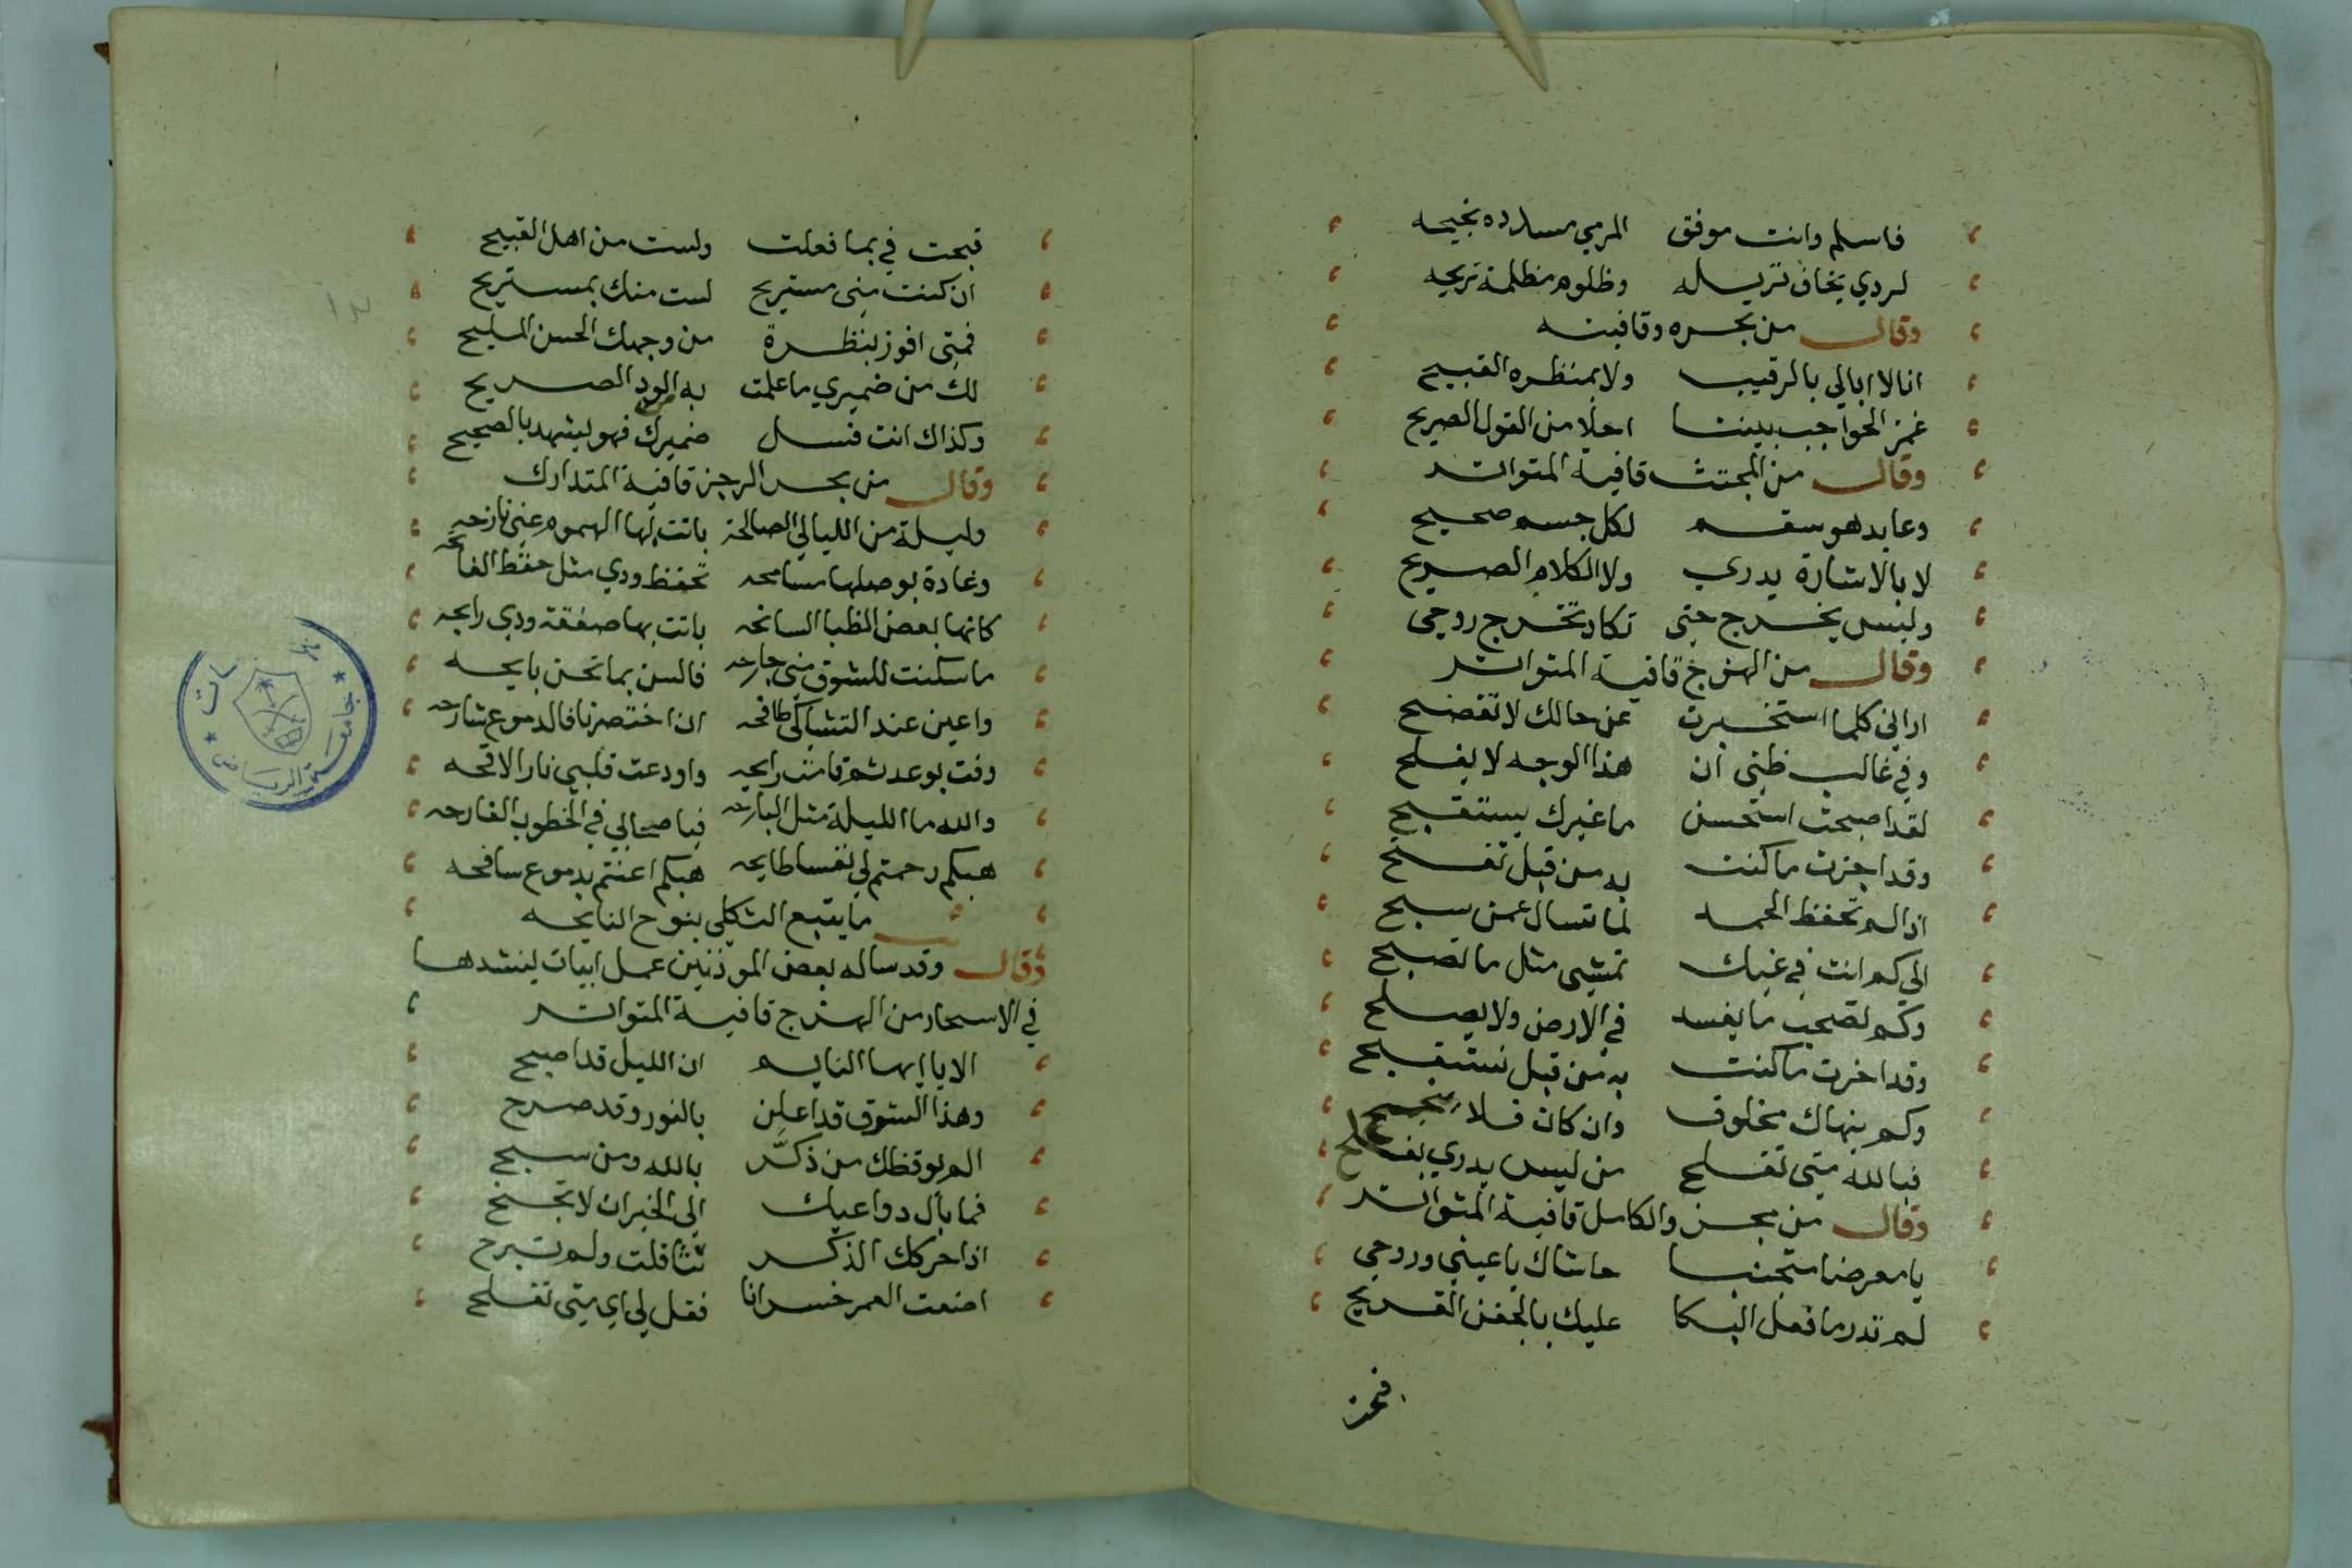 فاسلم وانت موفق المرمي مسدده نجيحه
لردي يخاف تزيله وظلوم مظلمة تريحه
وقال من بحره وقافيته
انا لا ابالي بالرقيب ولا بمنظره القبيح
غمز الحواجب بيننا احلا من القول الصريح
وقال من المجتث قافية المتواتر
وعايد هو سقم لكل جسم صحيح
لا بالاشارة يدري ولا الكلام الصريح
وليس يخرج حتى تكاد تخرج روحي
وقال من الهزج قافية المتواتر
اراني كلما استخبرت عن حالك لا تفضح
وفي غالب ظني ان هذا الوجه لا يفلح
لقد اصبحت استحسن ما غيرك يستقبح
وقد اجزت ما كنت به من قبل تفسح
اذا لم تحفظ الحمد لما تسال عمن سبح
الى كم انت في غيك تمشي مثل ما تصبح
وكم تصحب ما يفسد في الارض ولا يصلح
وقد اخرت ما كنت به من قبل تستفتح
وكم ينهاك مخلوق وان كان فلا ينجح
فبالله متى تفلح من ليس يدري يفلح
وقال من مجزو الكامل قافية المتواتر
يا معرضا متجنبا حاشاك يا عيني وروحي
لم تدر ما فعل البكا عليك بالجفن القريح
قبحت في بما فعلت ولست من اهل القبيح
ان كنت مني مستريح لست منك بمستريح
فمتى افوز بنظرة من وجهك الحسن المليح
لك من ضميري ما علمت به الود الصريح
وكذاك انت فسل ضميرك فهو يشهد بالصحيح
وقال من بحر الرجز قافية المتدارك
وليلة من الليالي الصالحة باتت بها الهموم عني نازحه
وغادة بوصلها مسامحه تحفظ ودي مثل حفظ الفاتحه
كانها بعض الظبا السانحه باتت بها صفقة ودي رابحه
ما سكنت للشوق مني جارحه فالسن بما نحن بايحه
واعين عند التشاكي طافحه ان اختصرنا فالدموع شارحه
وفت بوعد ثم قامت رايحه واودعت قلبي نار الافحه
والله ما الليلة مثل البارحه فيا صحابي في الخطوب الفادحه
هبكم رحمتم لي نفسا طايحه هبكم اعنتم بدموع سافحه
ما يتبع الثكلى بنوح النايحه
وقال وقد ساله بعض الموذنين عمل ابيات لينشدها
في الاسحار من الهزج قافية المتواتر
الا يا ايها النايم ان الليل قد اصبح
وهذا الشوق قد اعلن بالنور وقد صرح
الم يوقظك من ذكر بالله ومن سبح
فما بال دواعيك الى الخيرات لا تجنح
اذا حركك الذكر تثاقلت ولم تبرح
اضعت العمر خسرانا فقل لي اي متى تفلح